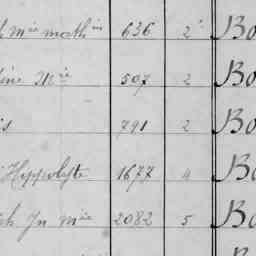 Mie 636 2 Bo
ine Mie 507 2 Bo
is 791 2 Bo
Hyppolyte 1677 4 Bo
ph Jn Mie 2082 5 Bo